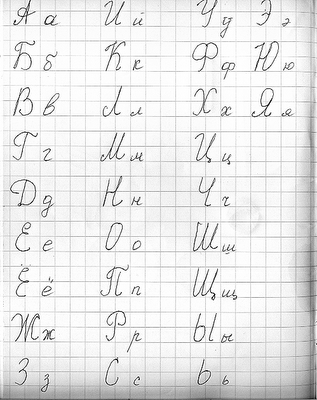 А а Й й У у Э э
Б б К к Ф ф Ю ю
В в Л л Х х Я я
Г г М м Ц ц
Д д Н н Ч ч
Е е О о Ш ш
Ё ё П п Щ щ
Ж ж Р р Ы ы
З з С с Ь ь